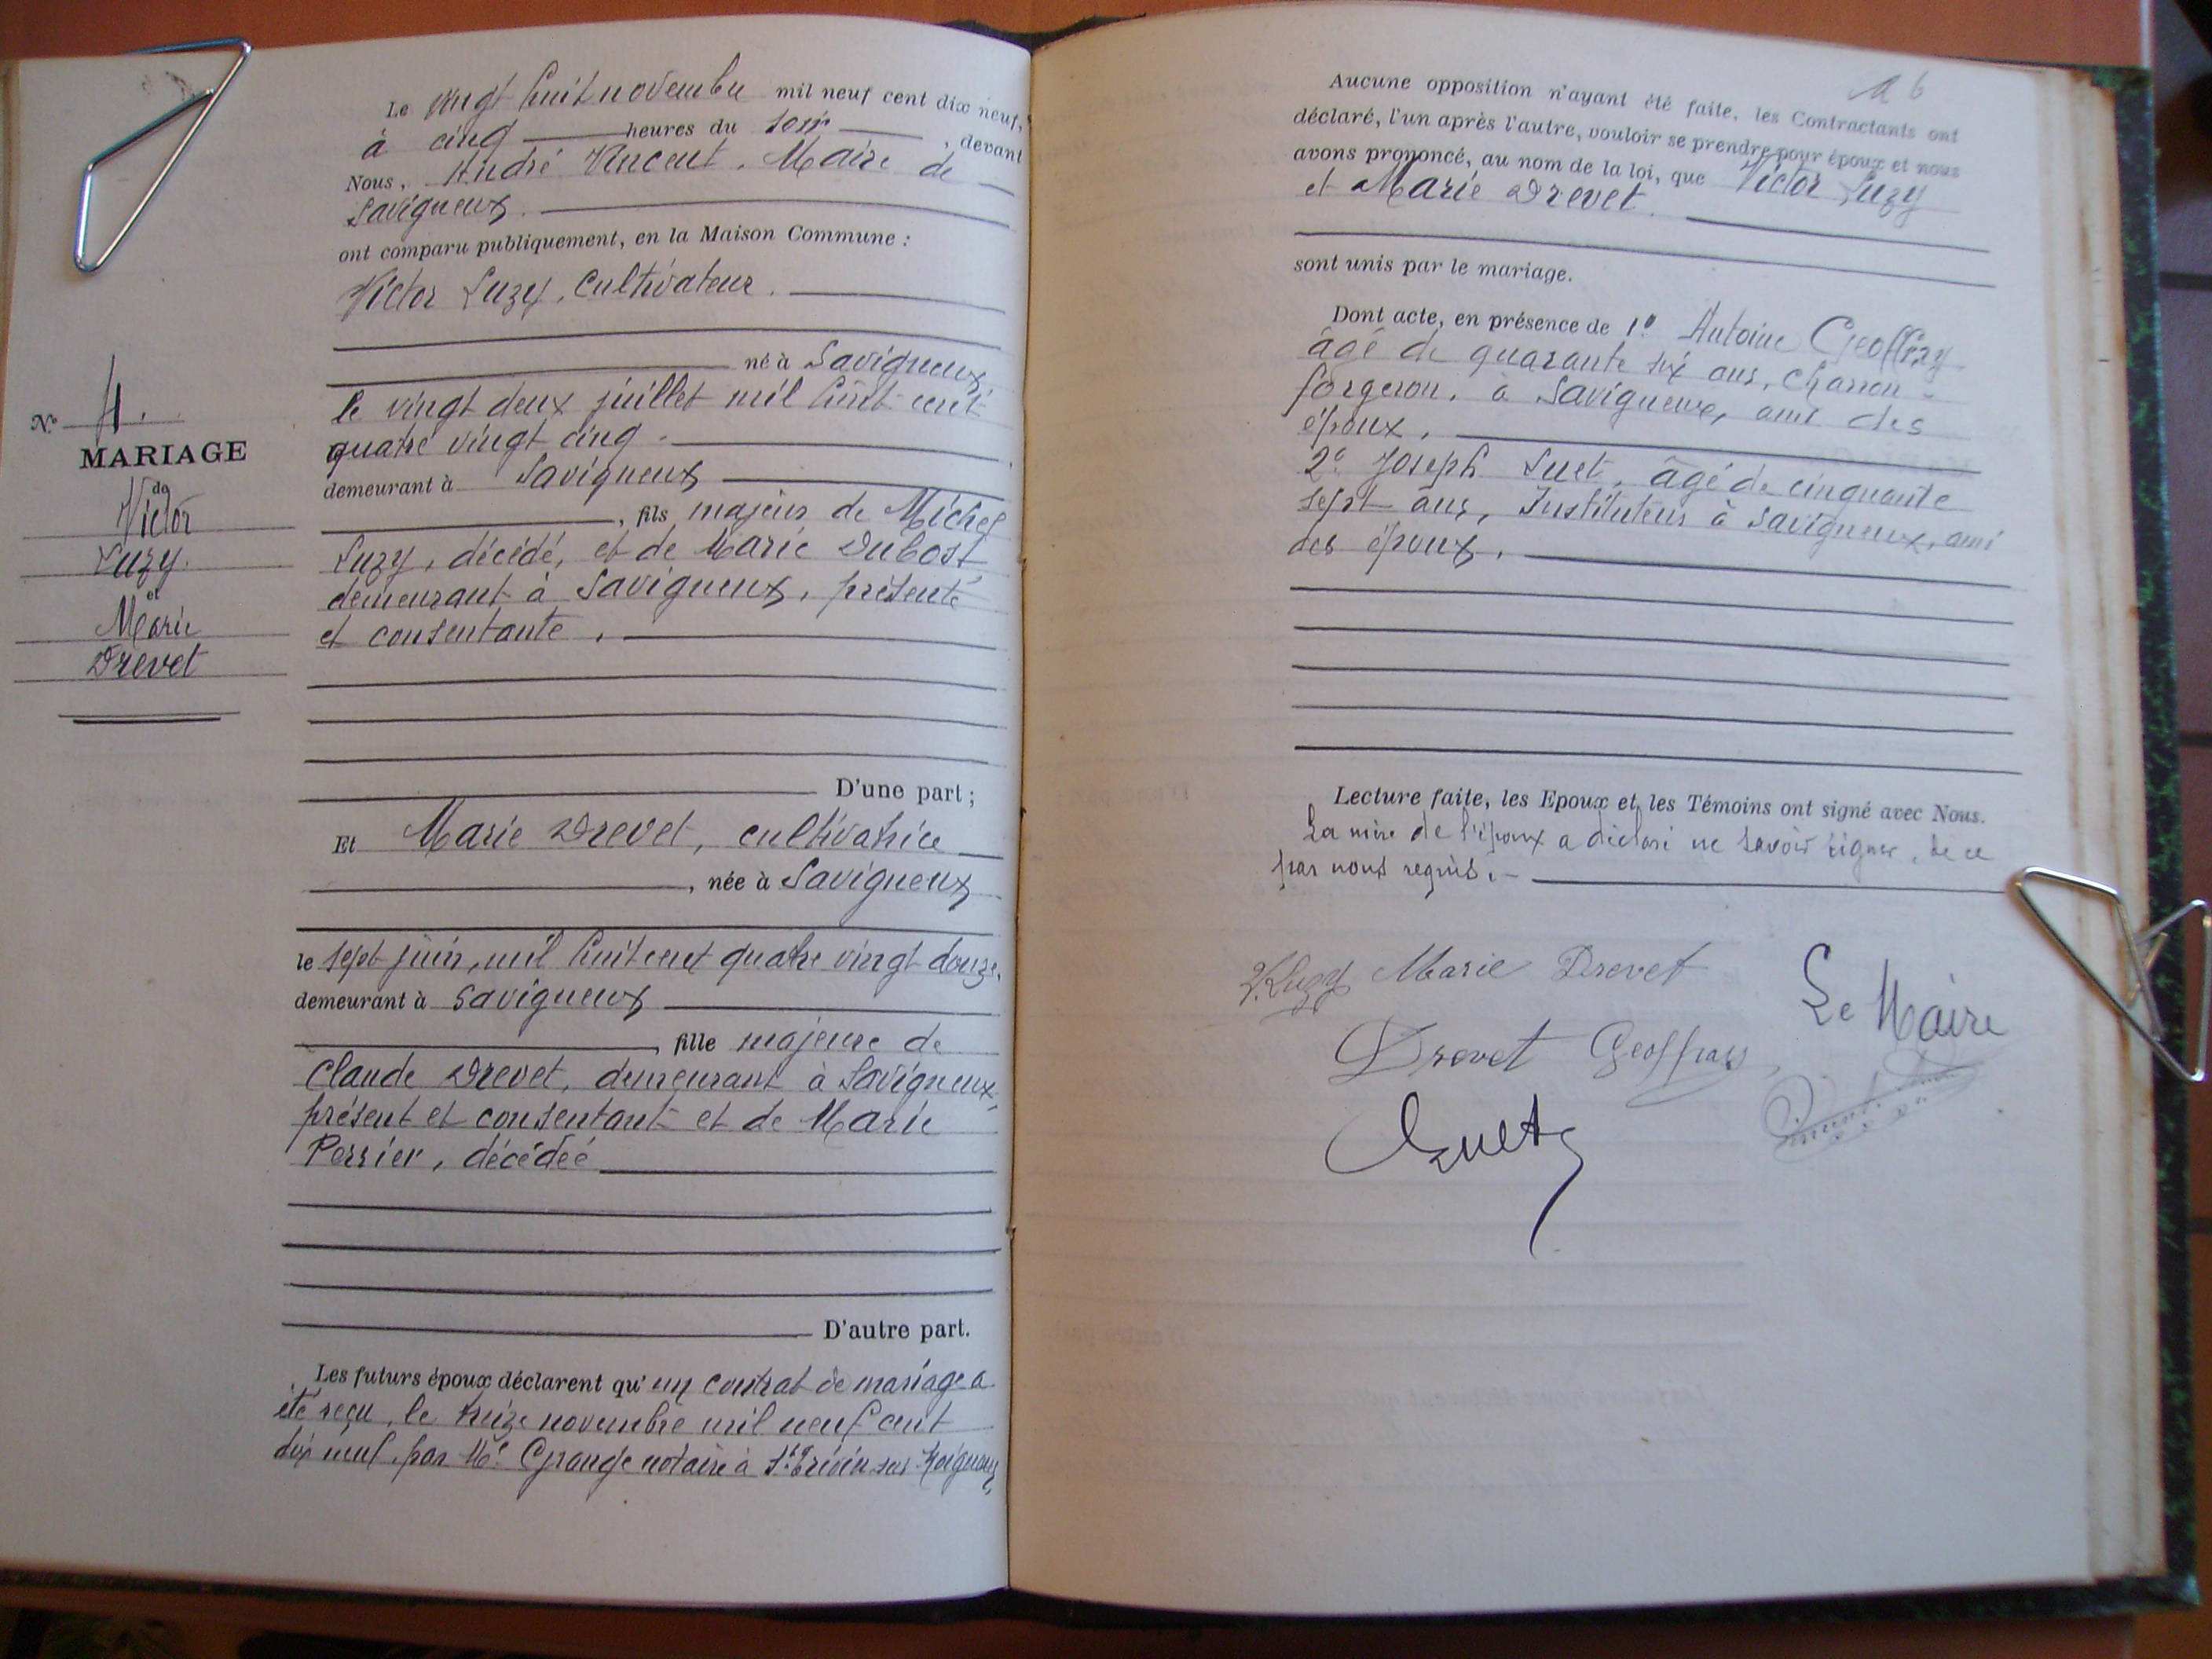 N° 4.
MARIAGE
de
Victor
Luzy.
et
Marie
Drevet
Le vingt huit novembre mil neuf cent dix neuf,
à cinq heures du soir, devant
Nous, André Vincent, Maire de
Savigneux.
ont comparu publiquement, en la Maison Commune :
Victor Luzy, cultivateur.
né à Savigneux,
le vingt deux juillet mil huit cent
quatre vingt cinq.
demeurant à Savigneux
, fils majeur de Michel
Luzy, décédé, et de Marie Dubost
demeurant à Savigneux, présente
et consentante.
D'une part ;
Et Marie Drevet, cultivatrice
, née à Savigneux
le sept juin, mil huit cent quatre vingt douze,
demeurant à Savigneux
, fille majeure de
Claude Drevet, demeurant à Savigneux,
présent et consentant et de Marie
Perrier, décédée
D'autre part.
Les futurs époux déclarent qu'un contrat de mariage a
été reçu, le treize novembre mil neuf cent
dix neuf, par Me Grange notaire à St Trivier sur Moignans,
Aucune opposition n'ayant été faite, les Contractants ont
déclaré, l'un après l'autre, vouloir se prendre pour époux et nous
avons prononcé, au nom de la loi, que Victor Luzy
et Marie Drevet.
sont unis par le mariage.
Dont acte, en présence de 1° Antoine Geoffray
âgé de quarante six ans, charron-
forgeron, à Savigneux, ami des
époux,
2° Joseph Suet, âgé de cinquante
sept ans, Instituteur à Savigneux, ami
des époux.
Lecture faite, les Epoux et les Témoins ont signé avec Nous.
La mère de l'époux a déclaré ne savoir signer, de ce
par nous requis.
V. Luzy Marie Drevet
Le Maire
Drevet Geoffray
Suet